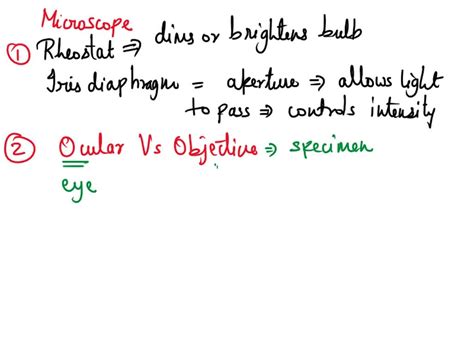 Microscope
① Rheostat ⇒ dims or brightens bulb
Iris diaphragm = aperture ⇒ allows light
to pass ⇒ controls intensity
② Ocular Vs Objective ⇒ specimen
eye